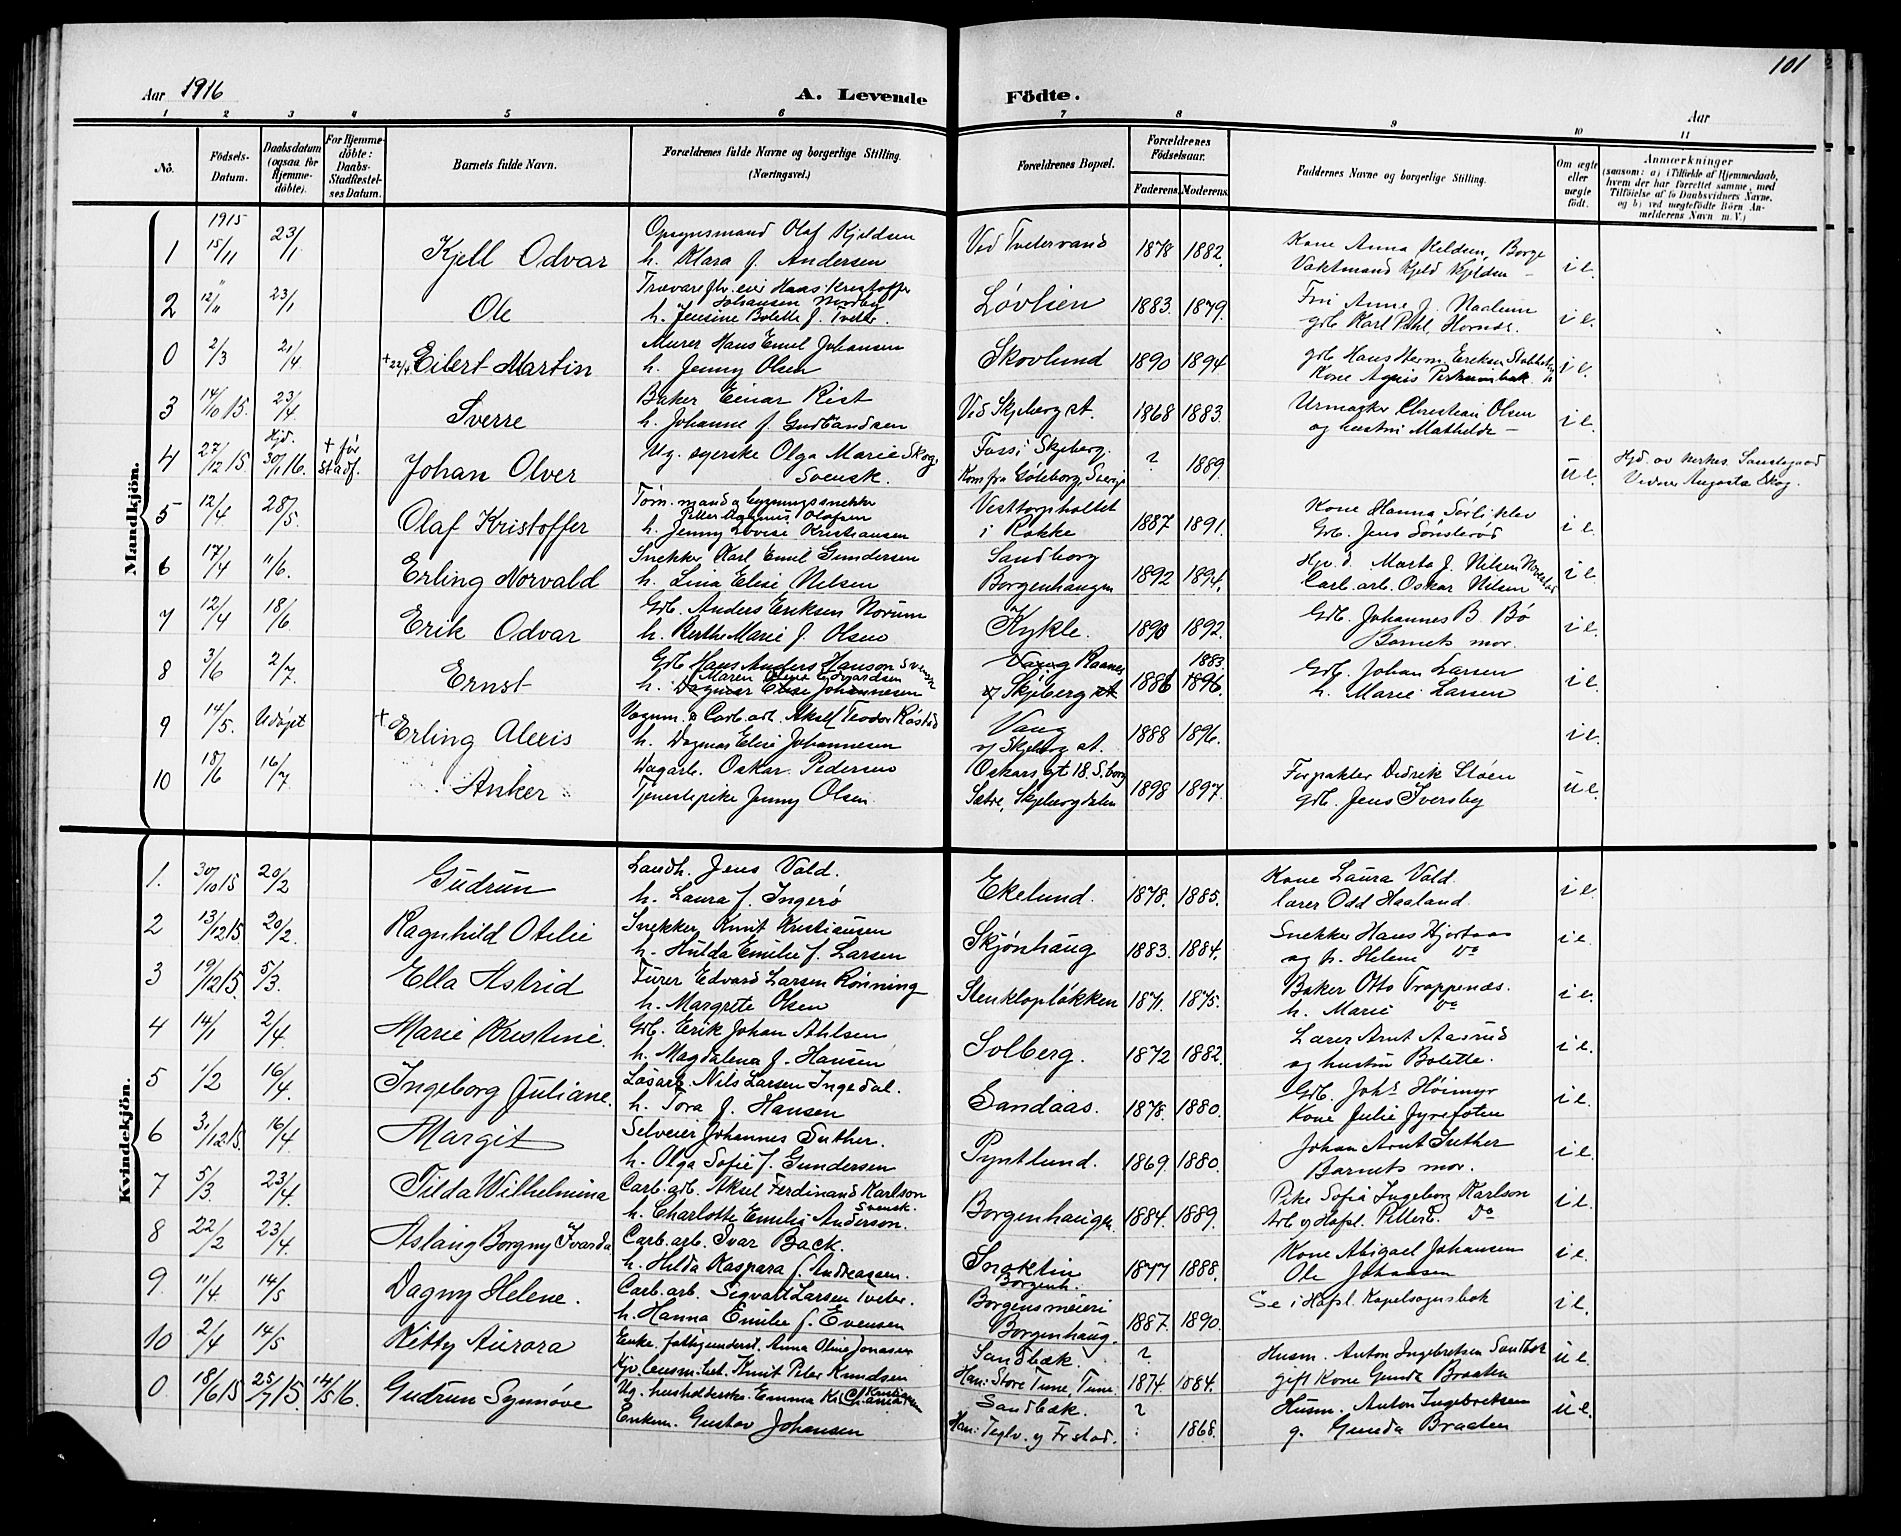 101
Aar 1916 A. Levende Födte. Aar
1 2 3 4 5 6 7 8 9 10 11
Nö. Födsels-Datum. Daabsdatum (ogsaa for Hjemmedöbte). For Hjemmedöbte: Daabs-Stadfæstelses Datum. Barnets fulde Navn. Forældrenes fulde Navne og borgerlige Stilling. (Næringsvei.) Forældrenes Bopæl. Forældrenes Födselsaar. Faderens. Moderens. Faddernes Navne og borgerlige Stilling. Om ægte eller uægte födt. Anmærkninger (saasom: a) i Tilfælde af Hjemmedaab, hvem der har forrettet samme, med Tilföielse af to Daabsvidners Navne, og b) ved uegtefödte Börn Anmelderens Navn m. V.)
Mandkjön.
1915
1 15/11 23/1 Kjell Odvar Opsynsmand Olaf Kjeldsen Ved Tvetervand 1878 1882. Kone Anna Kjeldsen, Borge i e.
h. Klara f. Andersen Vaktmand Kjeld Kjeldsen —
2 12/11 23/1 Ole Trævareflv. eier Hans Kristoffer Johansen Norby Løvlien 1883. 1879. Fru Anne J. i e.
h. Jensine Bolette f. Tveter. gdb. Karl Pahl, Hornæs.
0 2/3 21/4 +22/4 Eilert Martin Murer Hans Emil Johansen Skovlund 1890 1894 gdb. Hans Herm. Eriksen i e.
h. Jenny Olsen Kone Agnes
3 14/10 15. 23/4 Sverre Baker Einar Rist Ved Skjeberg st. 1868 1883. Urmaker Christian Olsen i e.
h. Johanne f. Gudbrandsen og hustru Mathilde —
4 27/12 15 Hjd. 30/1 16. + før stadf. Johan Olver Ug. syerske Olga Marie Skog, Foss i Skjeberg. ? 1889. u e. Hjd. av
Svensk. Kom fra Göteborg, Sverige Vidne Augusta Skog.
5 12/4 28/5. Olaf Kristoffer Tøm. mand & bygningssnekker Vesttorpholtet 1887 1891. Kone Hanna Sørliklev i e.
Petter Magnus Olafsen i Rokke Gdb. Jens Sønsterød
h. Jenny Lovise Kristiansen
6 17/4 11/6. Erling Norvald Snekker Karl Emil Gundersen Sandborg 1892 1894. Marta J. Nilsen i e.
h. Lina Elise Nilsen Borgenhaugen Carb. arb. Oskar Nilsen
7 12/4 18/6 Erik Odvar Gdb. Anders Eriksen Norum Kykle. 1890 1892. Gdb. Johannes B. Bø i e.
h. Berthe Marie f. Olsen Barnets mor.
8 3/6 2/7. Ernst Gdb Hans Anders Hanson Svensk Vang Raanes 1886 1883. 1896. Gdb. Johan Larsen i e.
h. Maren Oline Edvardsen Dagmar Elise Johannesen v/ Skjeberg st h. Marie Larsen
9 14/5. Udøpt + Erling Alexis Vognm. & Carb. arb. Aksel Teodor Røstad Vang 1888 1896. i e.
h. Dagmar Elise Johannesen v/ Skjeberg st.
10 18/6 16/7 Anker Dagarb. Oskar Pedersen Oskars gt 18. S.borg 1898 1897. Forpakter Didrik Støen u e.
Tjenestepike Jenny Olsen Sætre, Skjebergdalen gdb. Jens Iversby
Kvindekjön.
1. 30/10 15 20/2 Gudrun Landh. Jens Vold. Ekelund. 1878. 1885. Kone Laura Vold. i e.
h. Laura f. Ingerø lærer Odd Haaland.
2 13/12 15 20/2. Ragnhild Otilie Snekker Knut Kristiansen Skjønhaug 1883. 1884. Snekker Hans Hjortaas i e.
h. Hulda Emilie f. Larsen og h. Helene Do
3 19/12 15. 5/3. Ella Astrid Furer Edvard Larsen Rønning Stenkløpløkken 1871. 1875. Baker Otto Trappenæs. i e.
h. Margrete Olsen h. Marie Do
4 14/1 2/4. Marie Kristine. Gdb. Erik Johan Ahlsen Solberg. 1872 1882. Lærer Arnt Aasrud i e.
h. Magdalena f. Hansen og hustru Bolette.
5 1/2 16/4. Ingeborg Juliane. Løsarb. Nils Larsen Ingedal. Sandaas. 1878. 1880. Gdb. Johs Høimyr i e.
h. Tora f. Hansen Kone Julie Fyrefoten
6 31/12 15. 16/4 Margit Selveier Johannes Suther. Pyntlund. 1869. 1880. Johan Arnt Suther i e.
h. Olga Sofie f. Gundersen Barnets mor.
7 5/3. 23/4. Tilda Wilhelmina Carb. arb. Aksel Ferdinand Karlson Borgenhaugen 1884. 1889. Pike Sofia Ingeborg Karlson i e.
Svensk. h. Charlotte Emilia Anderson. Arb v/ Hafsl. Do
8 22/2 23/4. Aslaug Borgny Ivarda Carb. arb. Ivar Back. Snaktin 1877 1888. Kone Abigael Johansen i e.
h. Hilda Kaspara f. Andreassen. Borgenh. Ole Johansen
9. 11/4. 14/5 Dagny Helene. Carb. arb. Sigvart Larsen Tveter. Borgensmeieri 1887. 1890. Se i Hafsl. Kapelsognsbok i e.
h. Hanna Emilie f. Evensen Borgenhaug.
10 2/4 14/5 Kitty Aurora Enke, fattigunderst. Anna Oline Jonassen Sandbæk. ? Husm. Anton Ingebretsen Sandbæk u e.
Knut Peter Knudsen Han: Store Tune, Tune 1874. 1884. gift Kone Gunda Braaten
0 18/6 15 25/7 15. 14/5 16. Gudrun Synnøve Ug. husholderske Emma Sandbæk. ? Husm. Anton Ingebretsen u e.
Enkem. Gustav Johansen Han: Teglv. v/ Fr.stad. 1868. g. Gunda Braaten